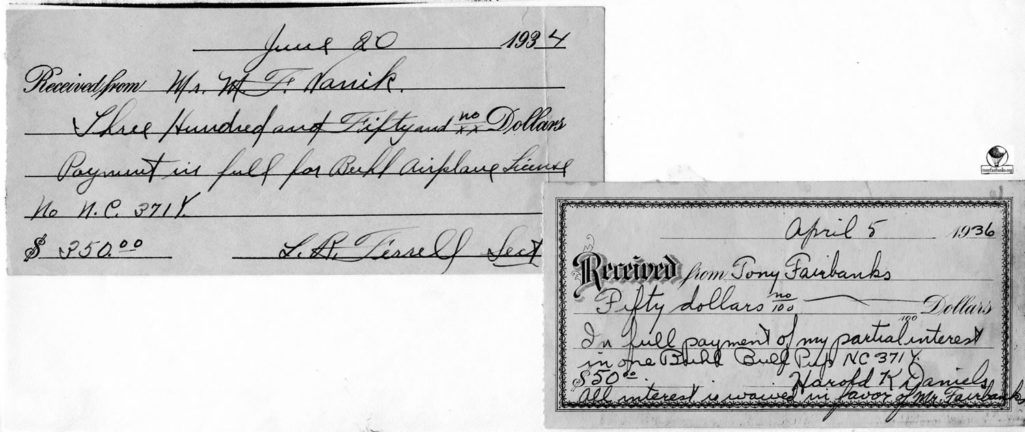 June 20 1934
Received from Mr. M. F. Vanik.
Three Hundred and Fifty and no/xx Dollars
Payment in full for Buhl Airplane License
No N.C. 371Y.
$ 350.00 L. R. Tirrell Sect
April 5 1936
Received from Tony Fairbanks
Fifty dollars no/100 Dollars
100
In full payment of my partial interest
in one Buhl Bull Pup NC 371Y.
$50.00. Harold K Daniels
All interest is waived in favor of Mr. Fairbanks